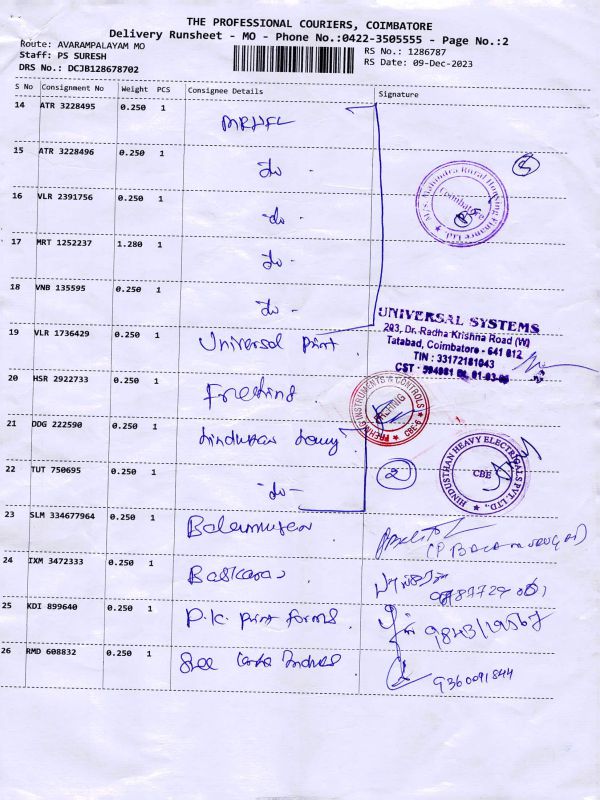 THE PROFESSIONAL COURIERS, COIMBATORE
Delivery Runsheet - MO - Phone No.:0422-3505555 - Page No.:2
Route: AVARAMPALAYAM MO
RS No.: 1286787
Staff: PS SURESH
RS Date: 09-Dec-2023
DRS No.: DCJB128678702
S No Consignment No Weight PCS Consignee Details Signature
14 ATR 3228495 0.250 1 MRHFL
15 ATR 3228496 0.250 1 do -
5
16 VLR 2391756 0.250 1 -do -
M/S. Mahindra Rural Housing Finance Ltd.
Coimbatore
17 MRT 1252237 1.280 1 do -
18 VNB 135595 0.250 1 do -
UNIVERSAL SYSTEMS
293, Dr. Radha Krishna Road (W)
Tatabad, Coimbatore - 641 012
TIN : 33172181043
19 VLR 1736429 0.250 1 Universal Print
20 HSR 2922733 0.250 1
INSTRUMENTS & CONTROLS
CBE-6
21 DDG 222590 0.250 1
HINDUSTHAN HEAVY ELECTRICALS PVT. LTD.,
CBE
22 TUT 750695 0.250 1 -do-
2
23 SLM 334677964 0.250 1
24 IXM 3472333 0.250 1 Baskaran
25 KDI 899640 0.250 1 P.K. Print forms.
9843119567
26 RMD 608832 0.250 1 Sree
9360091844